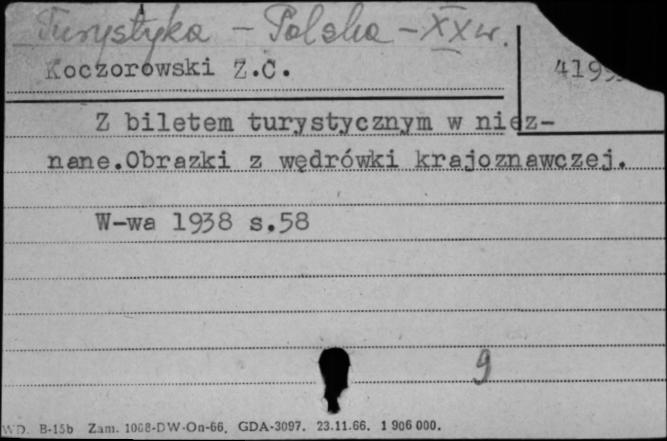 Turystyka - Polska - XX w.
Koczorowski Z.C.
Z biletem turystycznym w niez-
nane.Obrazki z wędrówki krajoznawczej.
W-wa 1938 s.58
9
WD. B-15b Zam. 1068-DW-On-66. GDA-3097. 23.11.66. 1 906 000.